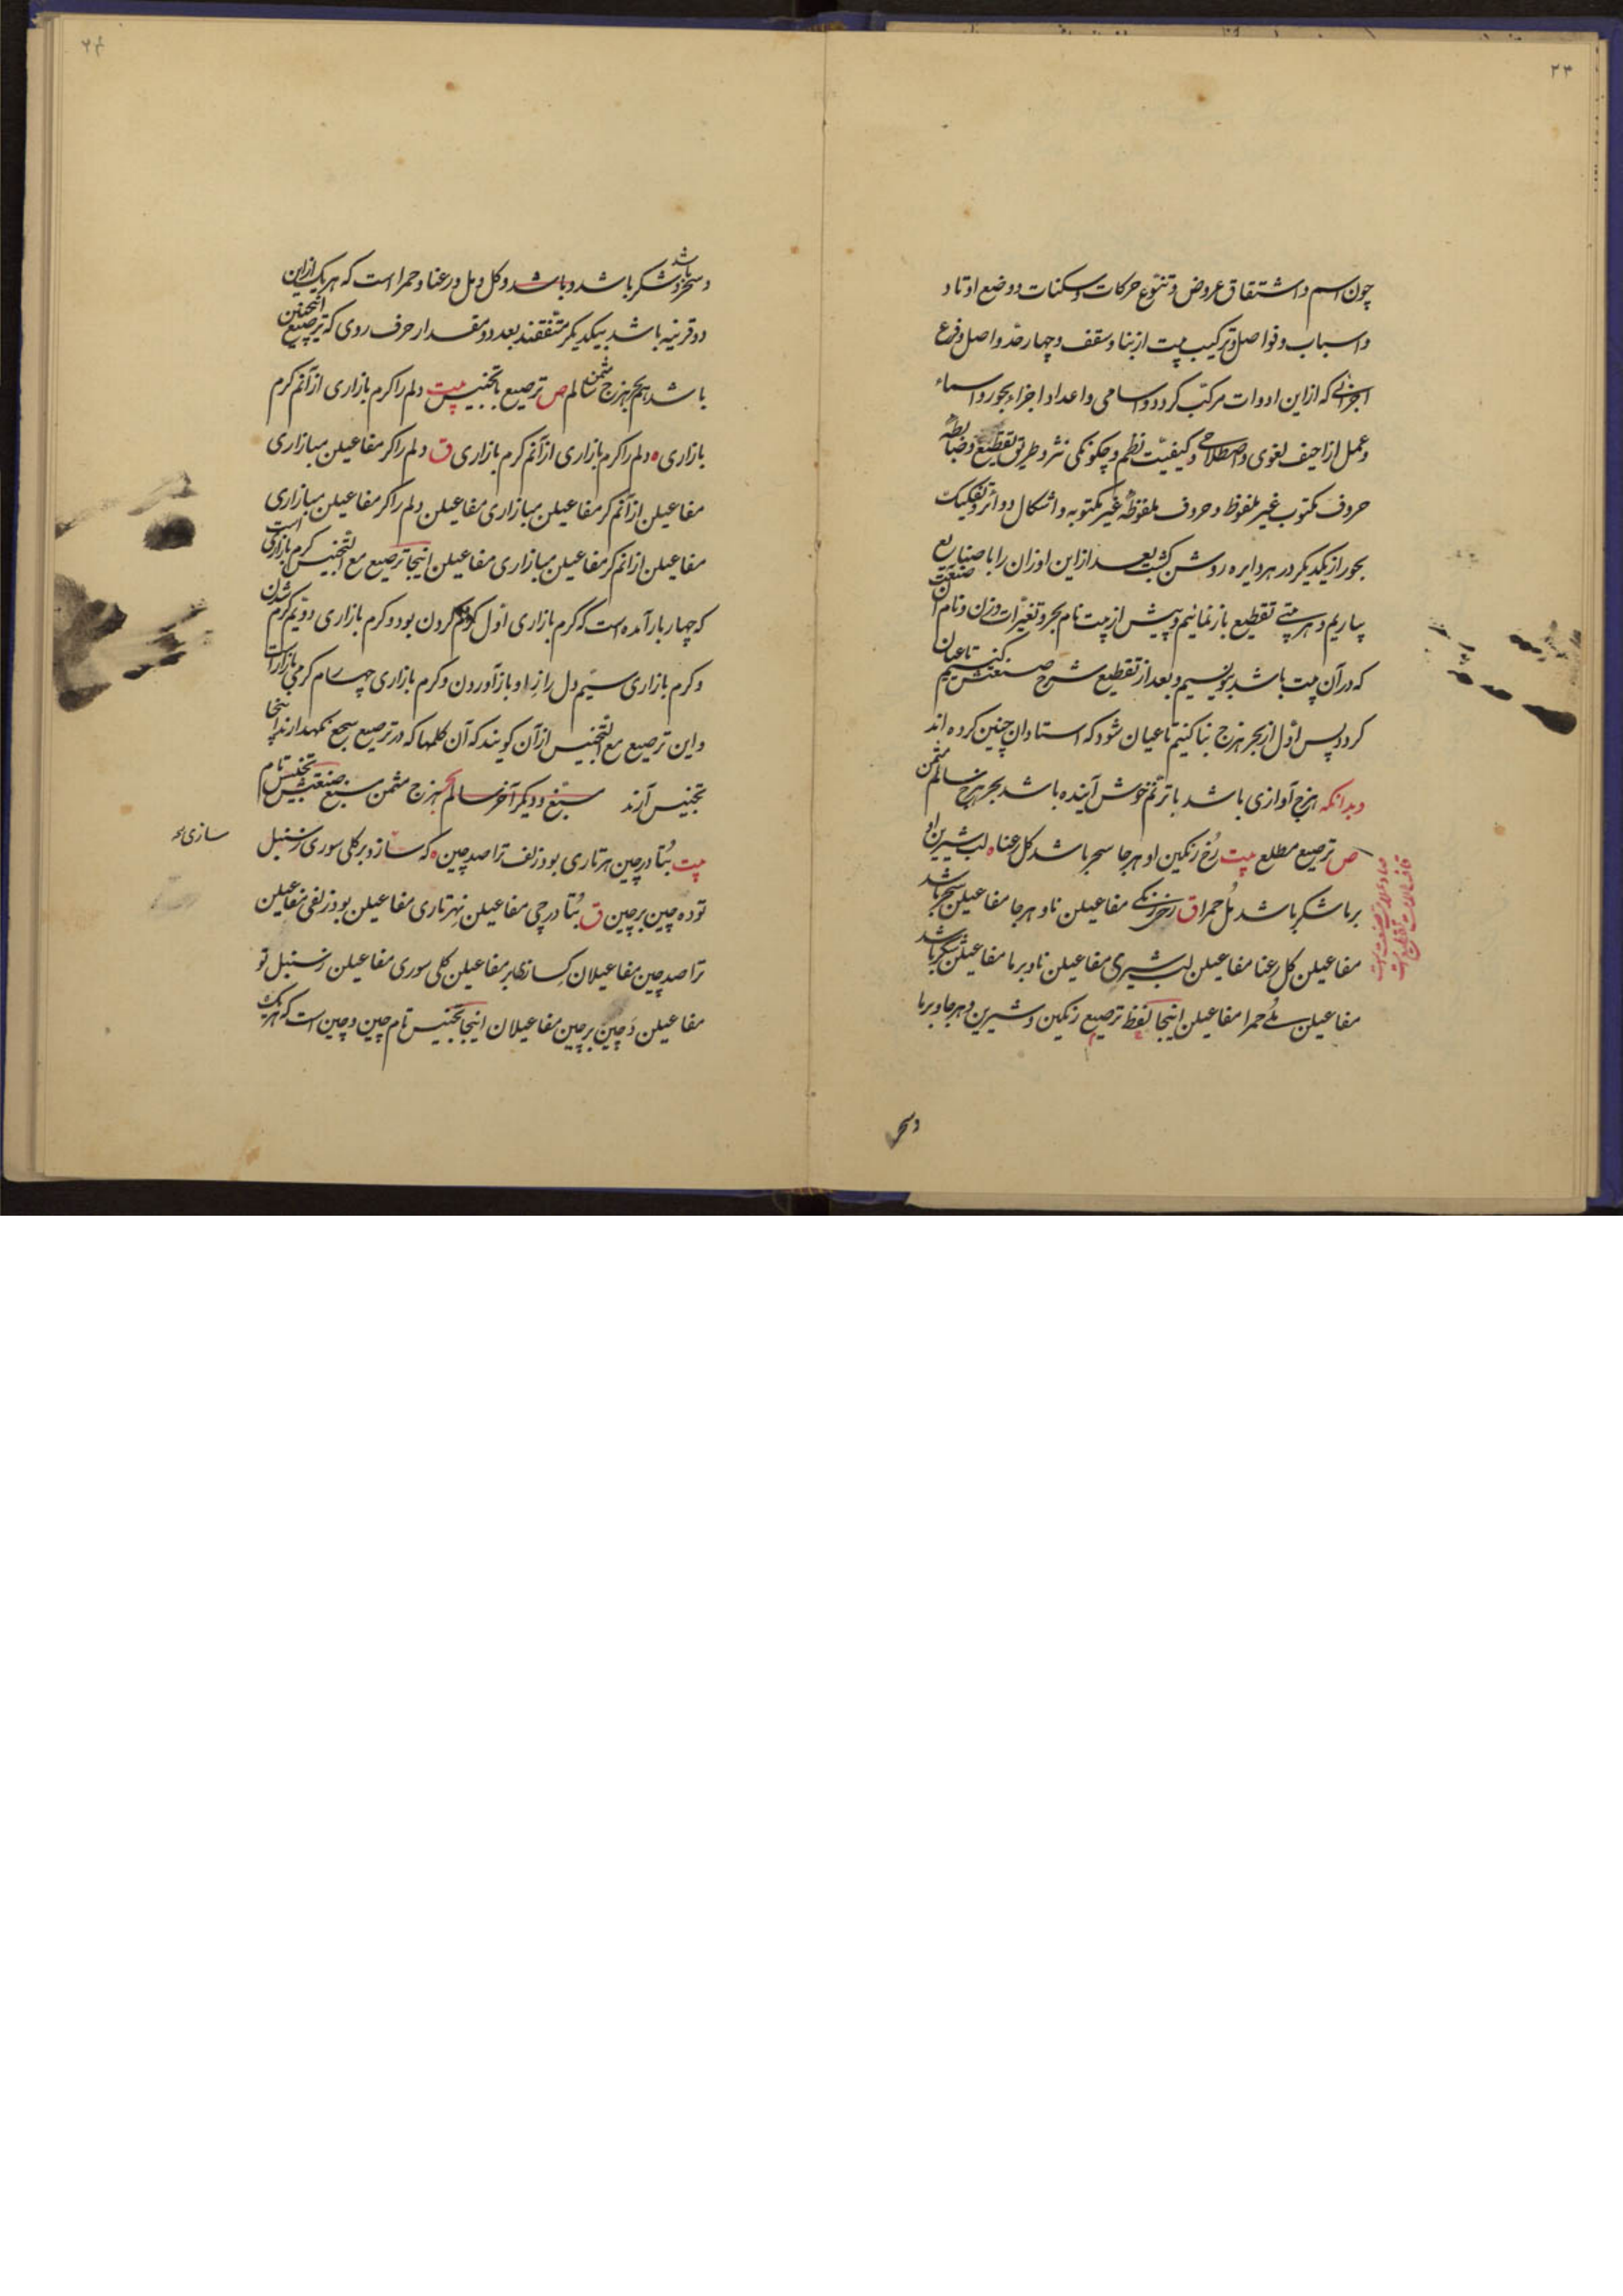 ۲۳
چون اسم و اشتقاق عروض و تنوّع حرکات و سکنات و وضع اوتاد
و اسباب و فواصل و ترکیب بیت از بنا و سقف و چهار حدّ و اصل و فرع
اجزائی که از این ادوات مرکّب کردد و اسامی و اعداد اجزاء بحور و اسماء
و عمل ازاحیف لغوی و اصطلاحی و کیفیّت نظم و چکونکی نثر و طریق تقطیع و ضابطهٔ
حروف مکتوب غیر ملفوظ و حروف ملفوظهٔ غیر مکتوبه و اشکال دوائر و تفکیک
بحور از یکدیکر در هر دایره روشن کشت بعد از این اوزان را با صنایع
بیاریم و هر بیتی تقطیع باز نمائیم و پیش از بیت نام بحر و تغیّرات وزن و نام آن صنعت
که در آن بیت باشد بنویسیم و بعد از تقطیع شرح صنعتش کنیم تا عیان
کردد پس اوّل از بحر هزج بنا کنیم تا عیان شود که استادان چنین کرده اند
و بدانکه هزج آوازی باشد با ترنّم خوش آینده باشد بحر هزج سالم مثمن
ص ترصیع مطلع بیت رخ رنکین او هر جا سحر باشد کل رعنا ه لب شیرین او
بر ما شکر باشد مُل حمرا ق رخی رنکی مفاعیلن ناو هر جا مفاعیلن سحر باشد
مفاعیلن کل رعنا مفاعیلن لب شیری مفاعیلن ناو بر ما مفاعیلن شکر باشد
مفاعیلن مُلی حمرا مفاعیلن اینجا لفظ ترصیع رنکین و شیرین و هر جا و بر ما
و سحر
۲۴
و سحر و شکر باشد و باشد و کل و مل و رعنا و حمرا است که هر یک از این
باشد
دو قرینه باشد بیکدیکر متّفقند بعدد و مقدار حرف روی که ترصیع اینچنین
باشد هم بحر هزج مثمن سالم ص ترصیع با تجنیس بیت دلم را کرم بازاری از آنم کرم
بازاری ه دلم را کرم بازاری از آنم کرم بازاری ق دلم را کر مفاعیلن مبازاری
مفاعیلن از آنم کر مفاعیلن مبازاری مفاعیلن دلم را کر مفاعیلن مبازاری
مفاعیلن از انم کر مفاعیلن مبازاری مفاعیلن اینجا ترصیع مع التّجنیس کرم بازاری است
که چهار بار آمده است که کرم بازاری اوّل کرم کردن بود و کرم بازاری دویّم کرم شدن
و کرم بازاری سیّم دل را از او باز آوردن و کرم بازاری چهارم کرمی بازار است
و این ترصیع مع التّجنیس از آن کویند که آن کلمها که در ترصیع سجع نکهدارند اینجا
تجنیس آرند مسبّغ و دیکر آخر سالم بحر هزج مثمن مسبّغ صنعتش تجنیس تام
بیت بُتا در چین هر تاری بود زلف ترا صد چین ه که سازد بر کل سوری ز سنبل
سازی
توده چین بر چین ق بُتا در چی مفاعیلن نهر تاری مفاعیلن بود زلفی مفاعیلن
ترا صد چین مفاعیلان که سازد بر مفاعیلن کل سوری مفاعیلن ز سنبل تو
مفاعیلن دَ چین بر چین مفاعیلان اینجا تجنیس تام چین و چین است که هر یک